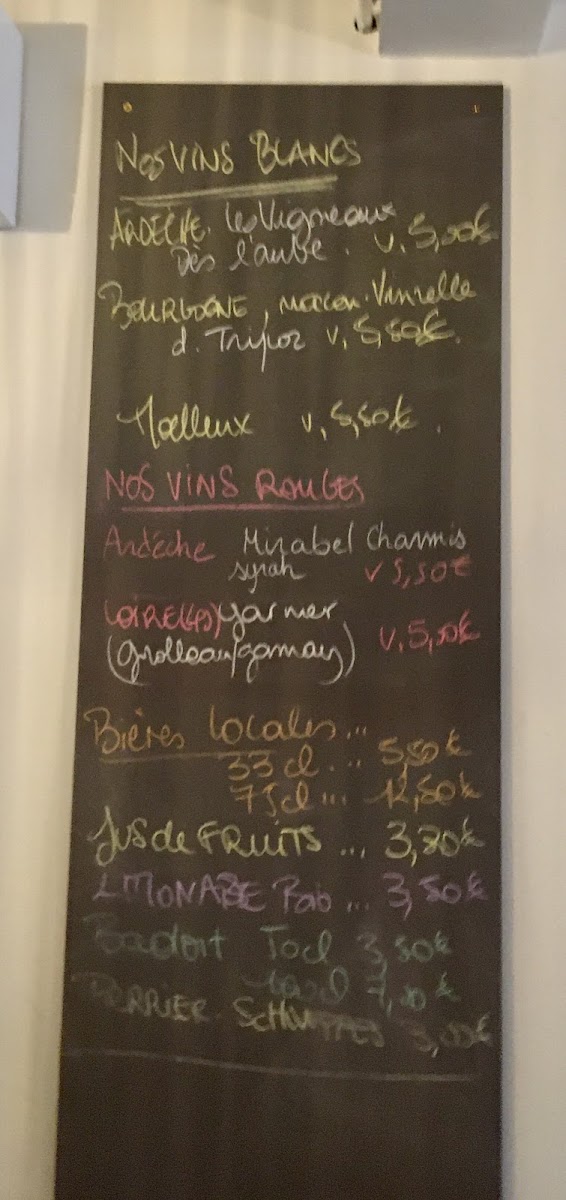 NOS VINS BLANCS
ARDÈCHE. les Vigneaux
Dès l'aube. v. 5,00€
BOURGOGNE, macon. Vinzelle
d. Tripoz v. 5,50€.
Moelleux v. 5,50€.
NOS VINS ROUGES
Ardèche Mirabel Charmis
syrah v 5,50€
LOIRE
(grolleau/gamay) v. 5,50€
Bières locales...
33 cl... 5,50€
75cl... 12,50€
JUS de FRUITS ... 3,80€
LIMONADE Bab ... 3,50€
Badoit 3,50€
7,00€
PERRIER. SCHWEPPES 3,00€